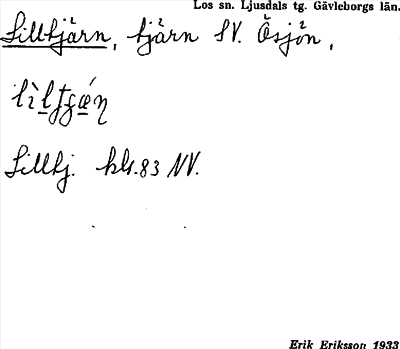 Los sn. Ljusdals tg. Gävleborgs län.
Lilltjärn, tjärn SV. Åsjön,
Lilltj. kbl. 83 NV.
Erik Eriksson 1933